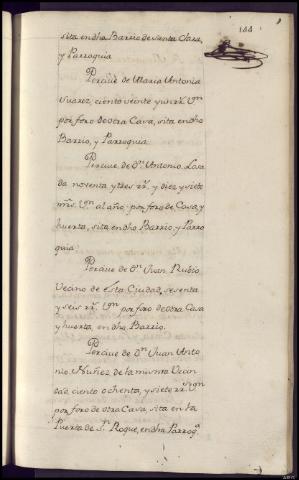 144
sita en dha Barrio de Santa Clara,
y Parroquia
Perciue de Maria Antonia
Suarez, ciento veinte y un rr. Von
por foro de otra Cava, sita en dho
Barrio, y Parroquia
Perciue de Dn. Antonio Losa
da noventa y tres rr. y diez y siete
mrs. Vn. al año por foro de Casa, y
huerta, sita en dho Barrio, y Parro
quia
Perciue de Dn. Juan Rubio
Vecino de esta Ciudad, sesenta
y seis rr. Von por foro de otra Casa
y huerta, en dho Barrio.
Perciue de Dn Juan Anto
nio Nuñez de la misma Vecin
dad, ciento ochenta, y siete rr. Von
por foro de otra Cava, sita en la
Puerta de Sn. Roque, en dha Parroqa.